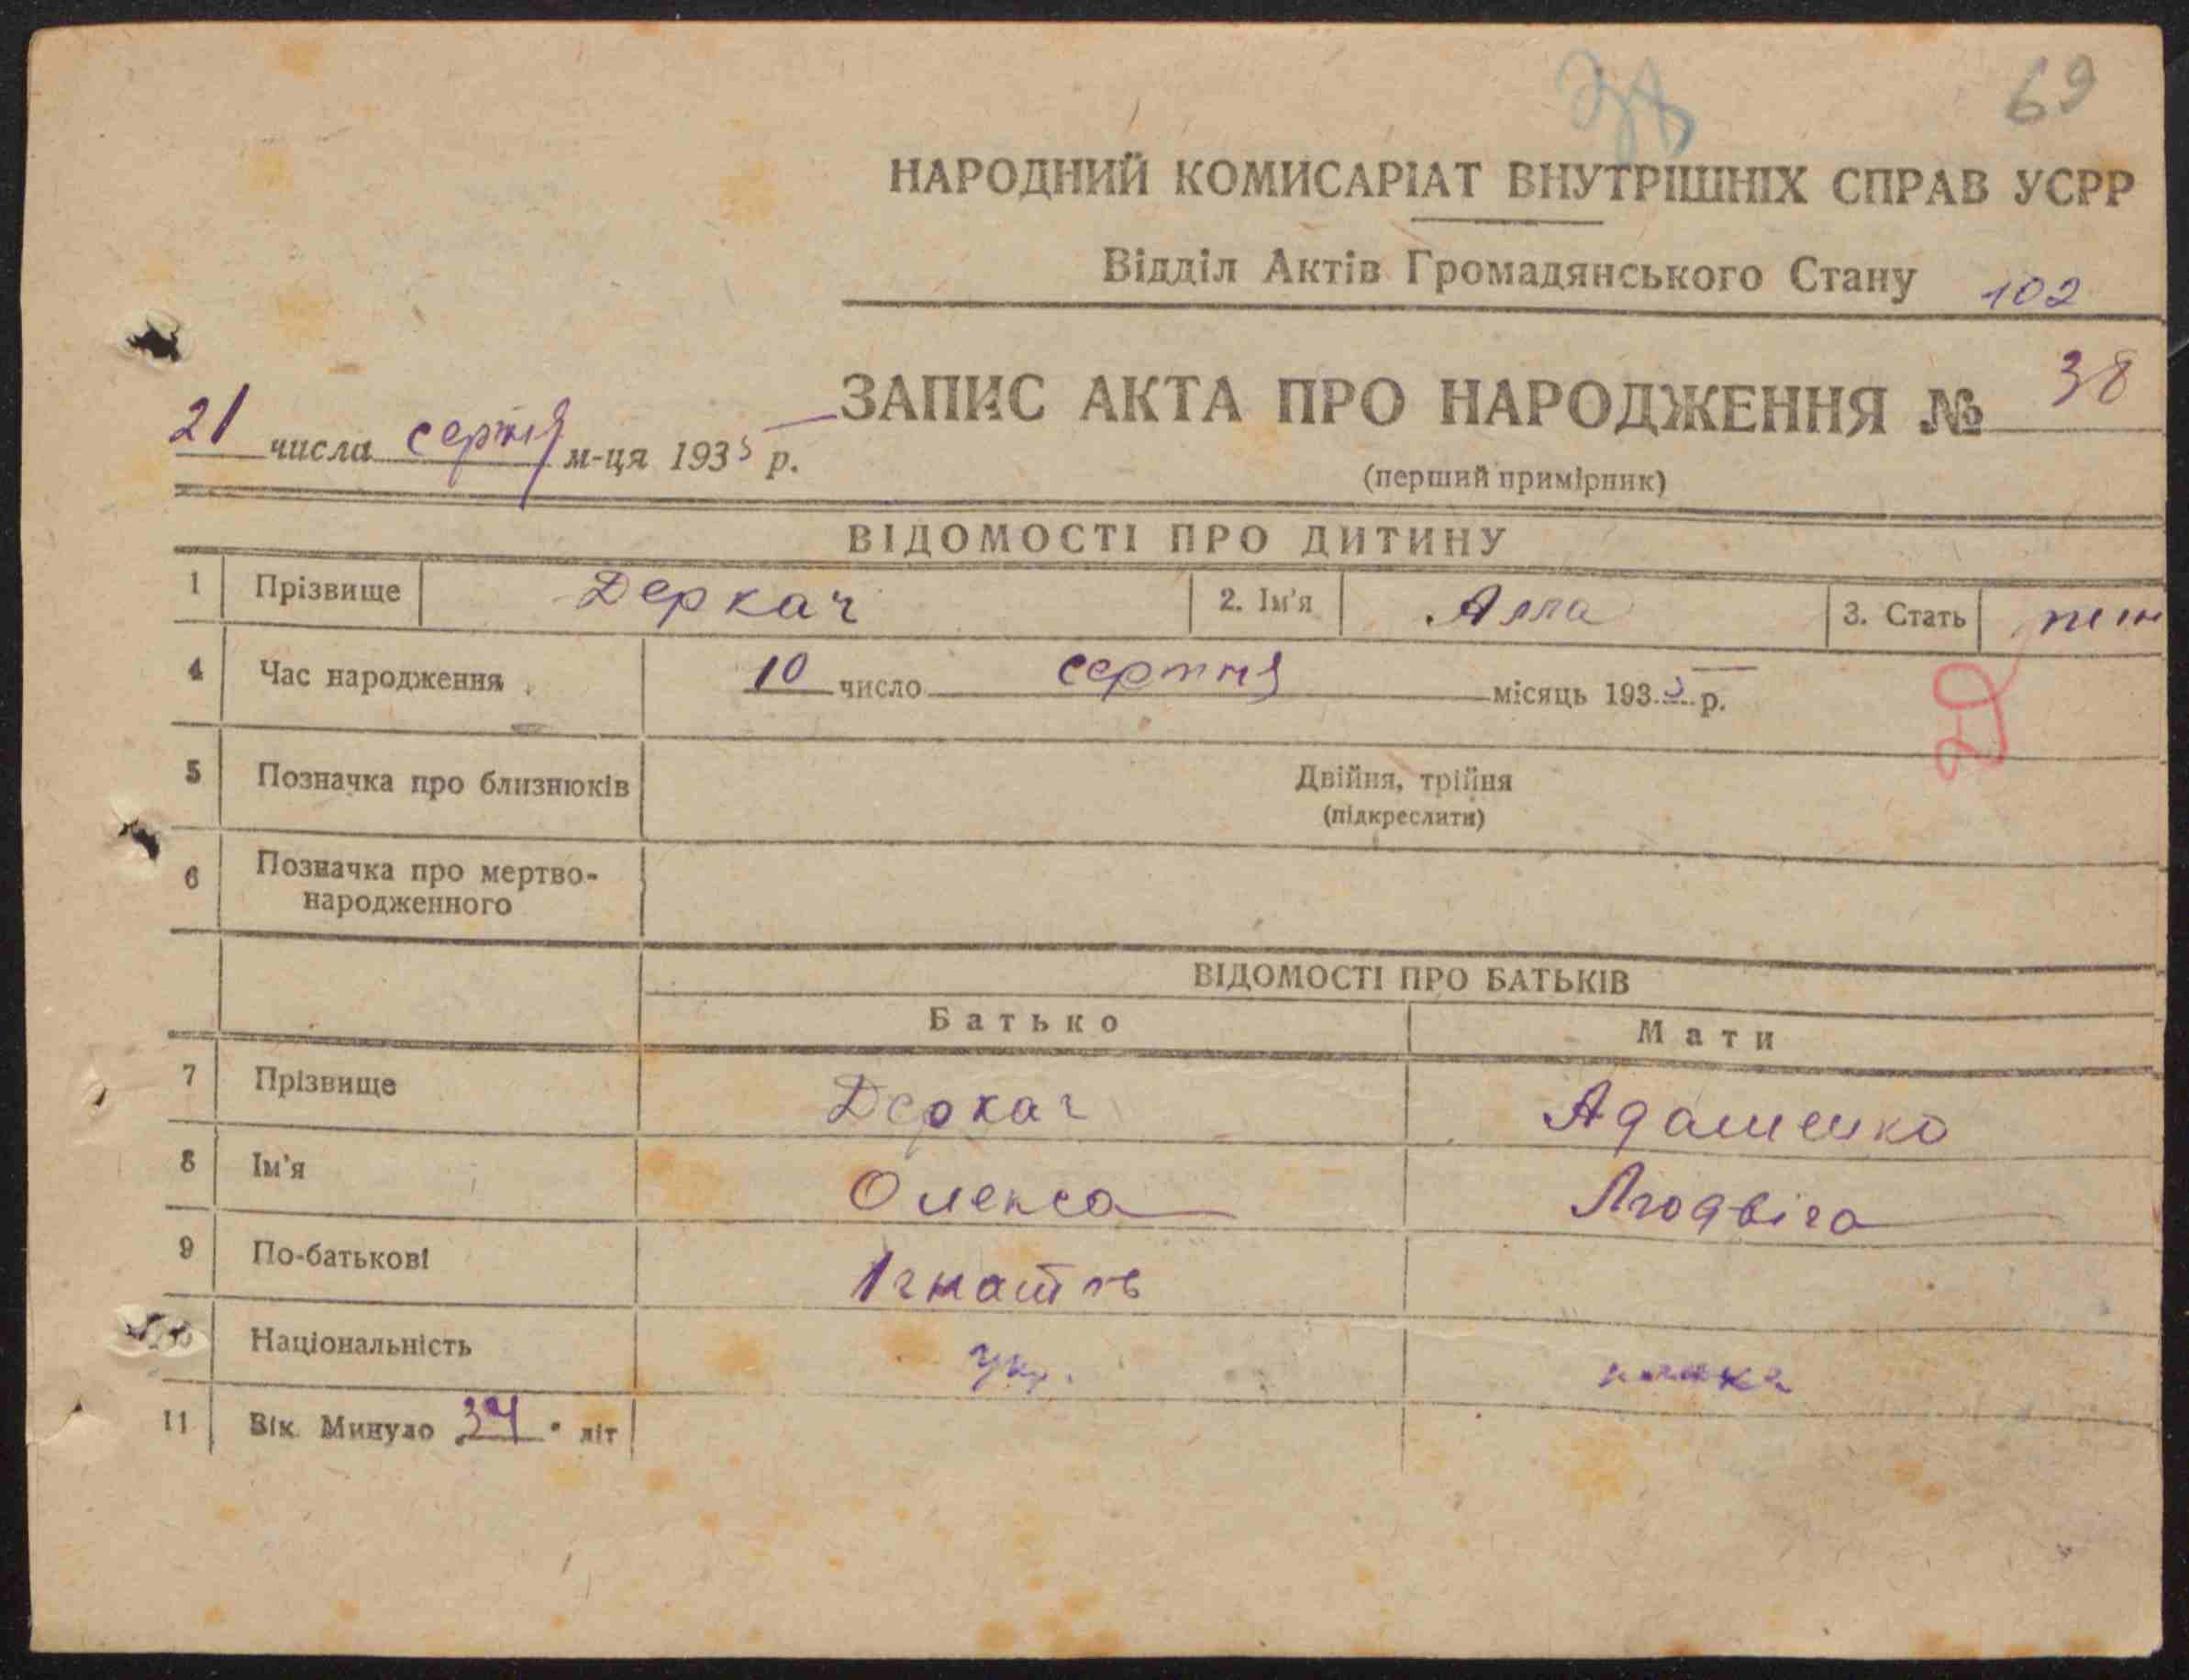 69
НАРОДНИЙ КОМИСАРІАТ ВНУТРІШНІХ СПРАВ УСРР
Відділ Актів Громадянського Стану 102
ЗАПИС АКТА ПРО НАРОДЖЕННЯ № 38
21 числа серпня м-ця 1935 р.
(перший примірник)
ВІДОМОСТІ ПРО ДИТИНУ
1 Прізвище Деркач 2. Ім'я Алла 3. Стать
4 Час народження 10 число серпня місяць 1935 р.
5 Позначка про близнюків Двійня, трійня
(підкреслити)
6 Позначка про мертво-
народженного
ВІДОМОСТІ ПРО БАТЬКІВ
Батько Мати
7 Прізвище Деркач Адаменко
8 Ім'я Олекса Людвіга
9 По-батькові Ігнатів
Національність укр.
11 Вік. Минуло літ